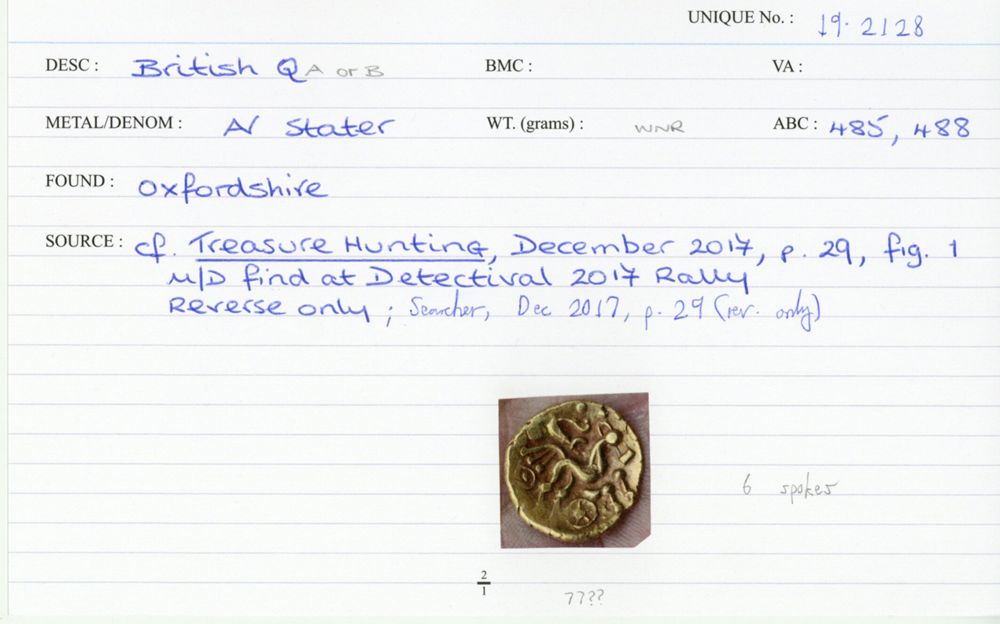 UNIQUE No. : 19. 2128
DESC : British Q A or B BMC : VA :
METAL/DENOM : AV Stater WT. (grams) : WNR ABC : 485, 488
FOUND : Oxfordshire
SOURCE : cf. Treasure Hunting, December 2017, p. 29, fig. 1
M/D find at Detectival 2017 Rally
Reverse only ; Searcher, Dec 2017, p. 29 (rev. only)
6 spokes
2
1
7???